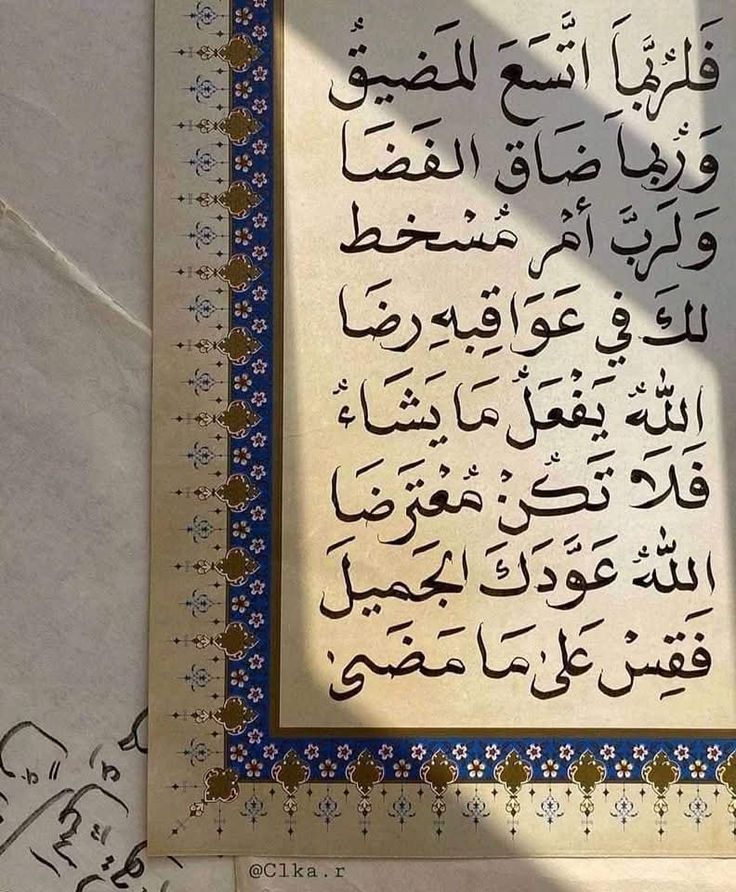 فَلَرُبَّمَا اتَّسَعَ المَضيقُ
وَرُبمَا ضَاقَ الفَضَا
وَلَرُبَّ أمْرٍ مُسْخطٍ
لكَ في عَوَاقِبهِ رِضَا
اللهُ يَفْعَلُ مَا يَشَاءُ
فَلَا تَكُنْ مُعْتَرِضَا
اللهُ عَوَّدَكَ الجَميلَ
فَقِسْ عَلى مَا مَضَى
@Clka.r